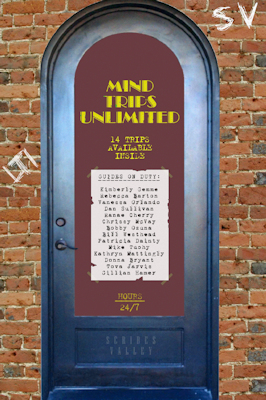 SV
MIND
TRIPS
UNLIMITED
14 TRIPS
AVAILABLE
INSIDE
GUIDES ON DUTY:
Kimberly
Rebecca Barton
Vanessa Orlando
Dan Sullivan
Cherry
Chrissy McVay
Bobby Ozuna
Bill Westhead
Patricia Dainty
Mike Tuohy
Kathryn Mattingly
Donna Bryant
Tova Jarvis
Gillian Hamer
HOURS
24/7
SCRIBES
VALLEY